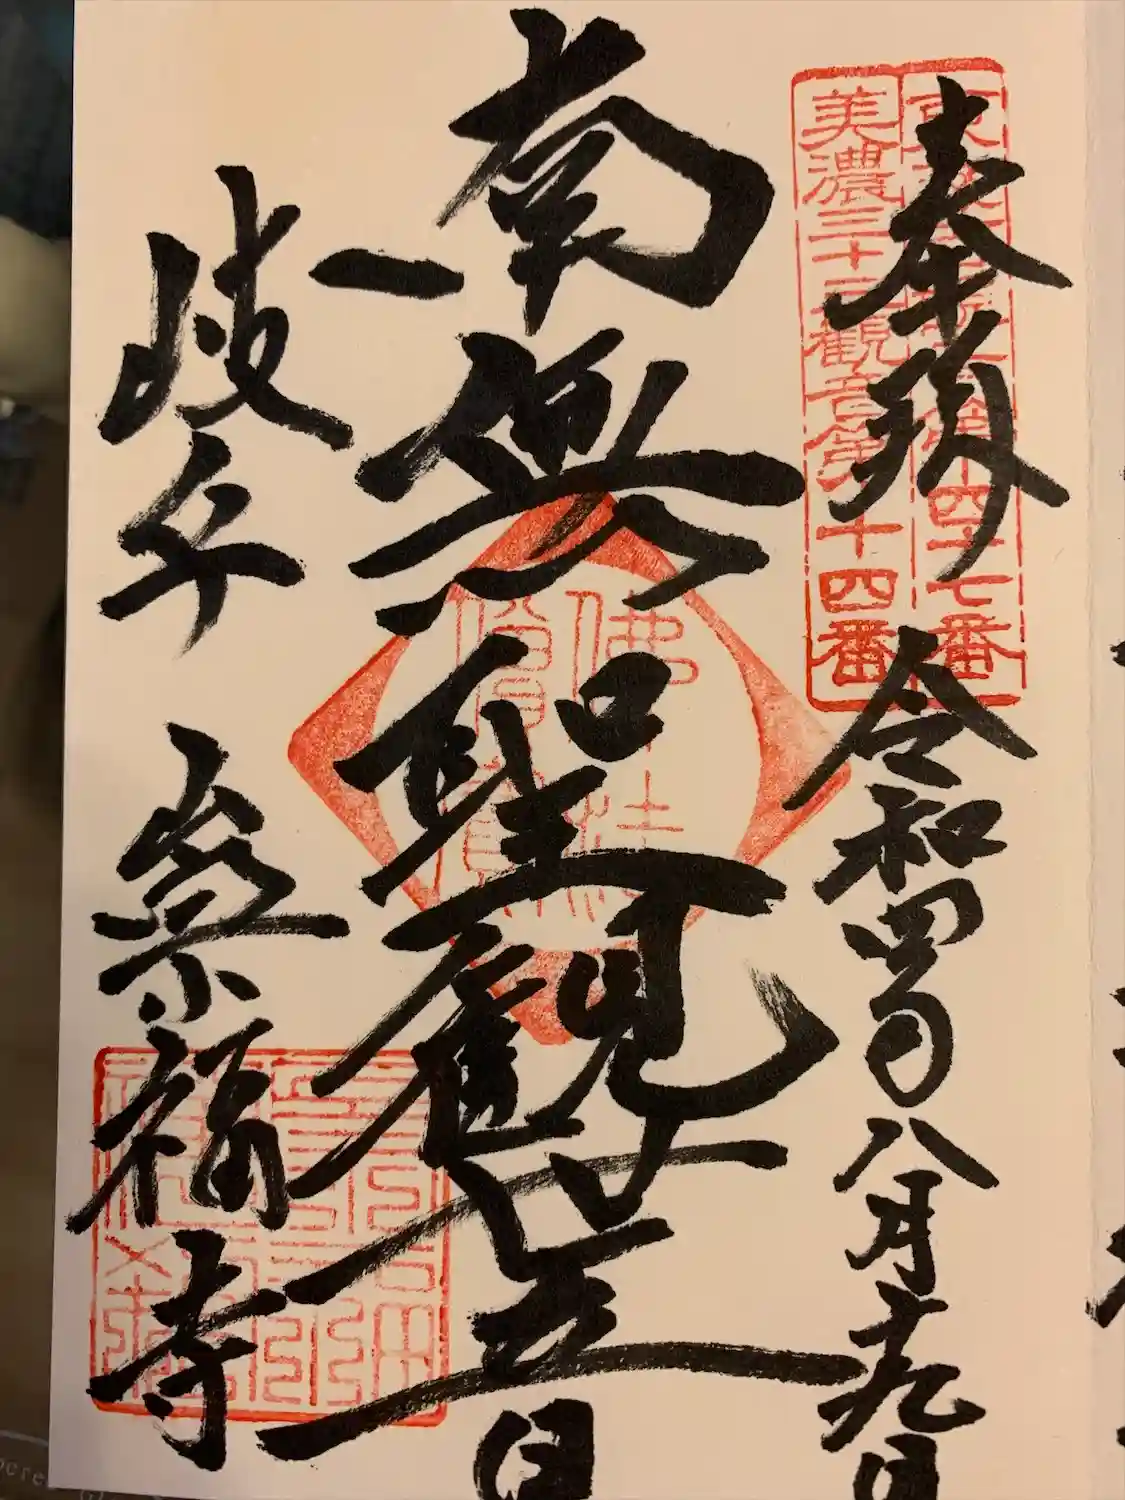 第四十七番
美濃三十三観音第十四番
奉拝 令和四年八月十九日
南無聖観世音
佛法
僧寶
岐阜 崇福寺